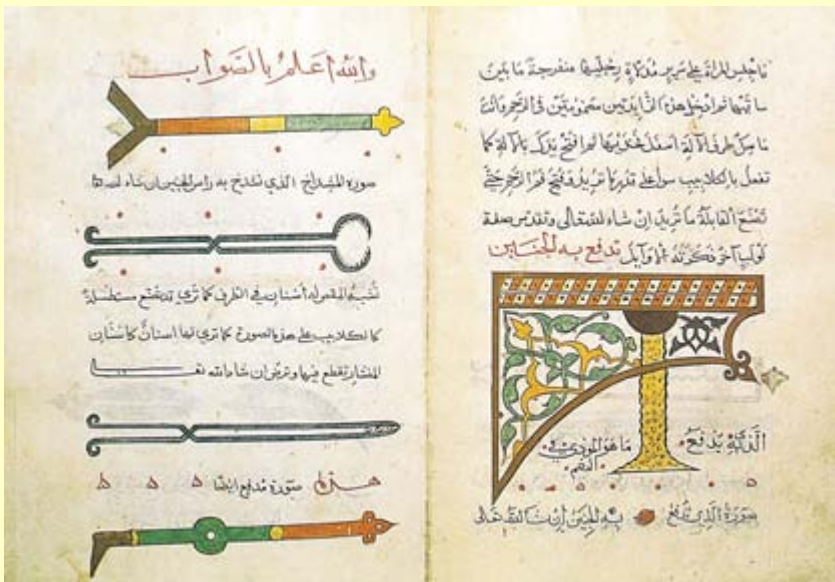 فاجلس المرأة على سرير مدلاة رجليها منفرجة ما بين
ساقيها ثم ادخل هذه الزايدتين مضمومتين في الرحم وانت
ماسك طرف الآلة اسفل فخذيها ثم افتح يدك بالآلة كما
تفعل بالكلاليب سوا على قدر ما تريد فتح فم الرحم حتى
تصنع القابلة ما تريد ان شاء الله تعالى
آخر ذكرته الاوايل تدفع به الجنين
يدفع ما هو الموذي في
الفم
صورة الذي تدفع به الجنين ان شا الله تعالى
والله اعلم بالصواب
صورة المشداخ الذي تشدخ به راس الجنين ان شاء الله
تشبه المقص له أسنان في الطرف كما ترى قد تصنع مستطيلة
كالكلاليب على هذه الصورة كما ترى لها اسنان كاسنان
المنشار يقطع بها وترض ان شاء الله تعا
هذه صورة مدفع ايضا